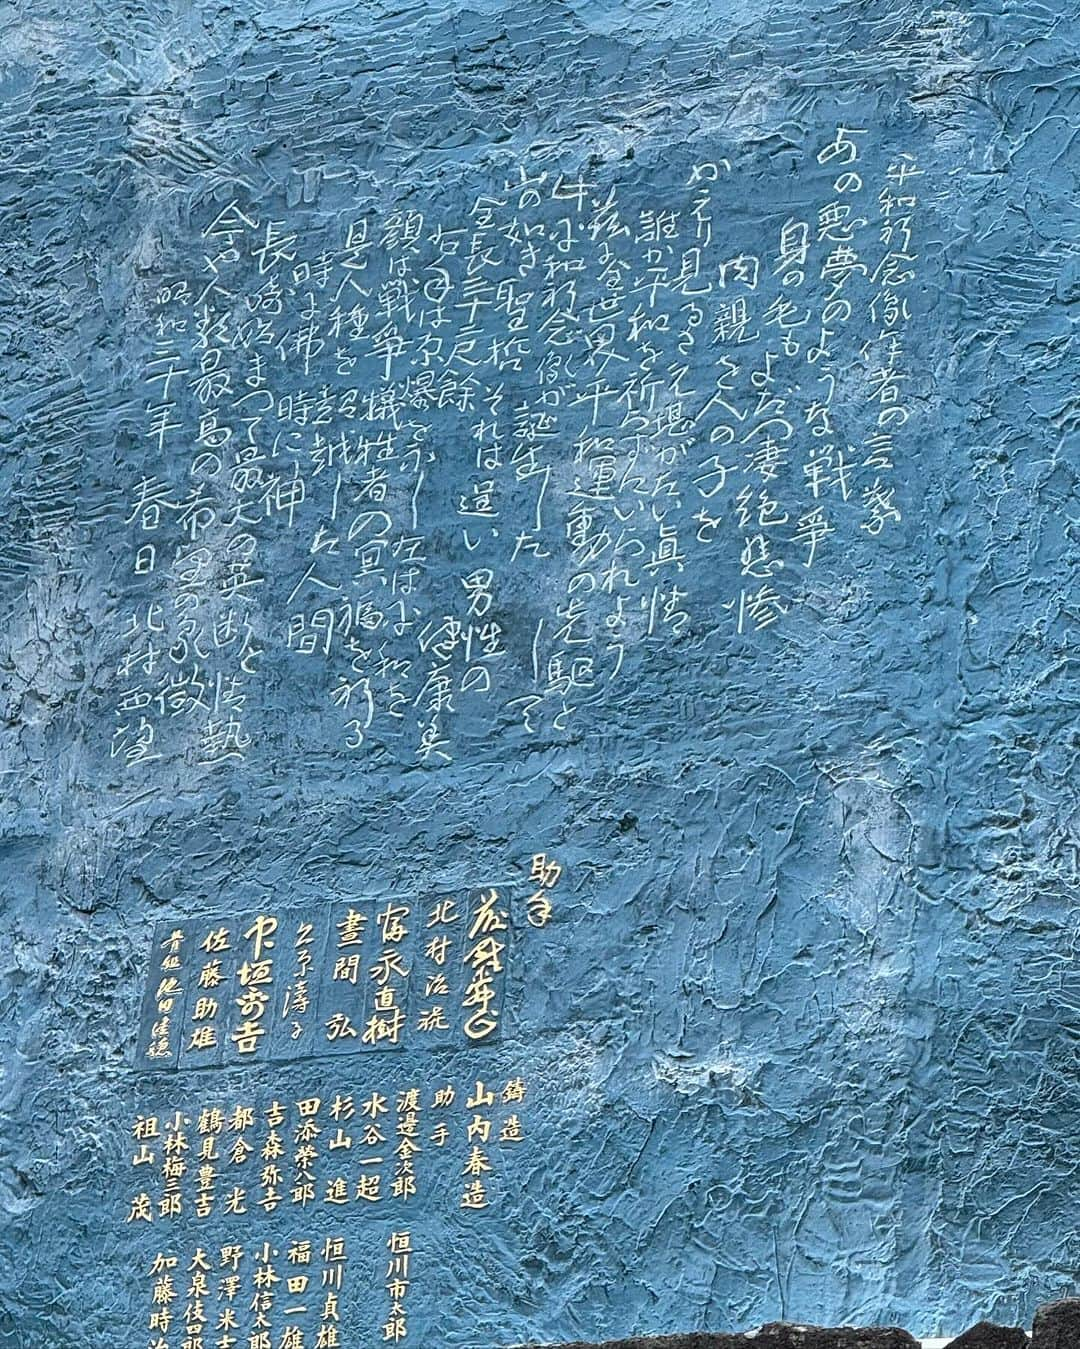 平和祈念像作者の言葉
あの悪夢のような戦争
身の毛もよだつ凄絶悲惨
肉親を人の子を
かえり見るさえ堪がたい真情
誰か平和を祈らずにいられよう
茲に全世界平和運動の先駆として
平和祈念像が誕生した
山の如き聖哲それは逞い男性の健康美
全長三十二尺餘
右手は原爆を示し左は平和を
顔は戦争犠牲者の冥福を祈る
是人種を超越した人間
時に佛 時に神
長崎始まつて最大の英断と情熱
今や人類最高の希望の象徴
昭和三十年 春日 北村西望
助手
北村治禧
富永直樹
晝間 弘
中垣
佐藤助雄
鋳造
山内春造
助手
渡邊金次郎
水谷一超
杉山 進
田添榮八郎
吉森弥吉
都倉 光
鶴見豊吉
小林梅三郎
祖山 茂
恒川市太郎
恒川貞雄
福田一雄
小林信太郎
野澤米吉
大泉伎四郎
加藤時